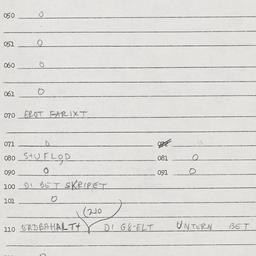 050 0
051 0
060 0
061 0
070 EROT FARIXT
071 0
080 STUFLOD 081 0
090 0 091 0
100 DI BET SKRIPET
101 0
(210
110 DI UNTERN BET